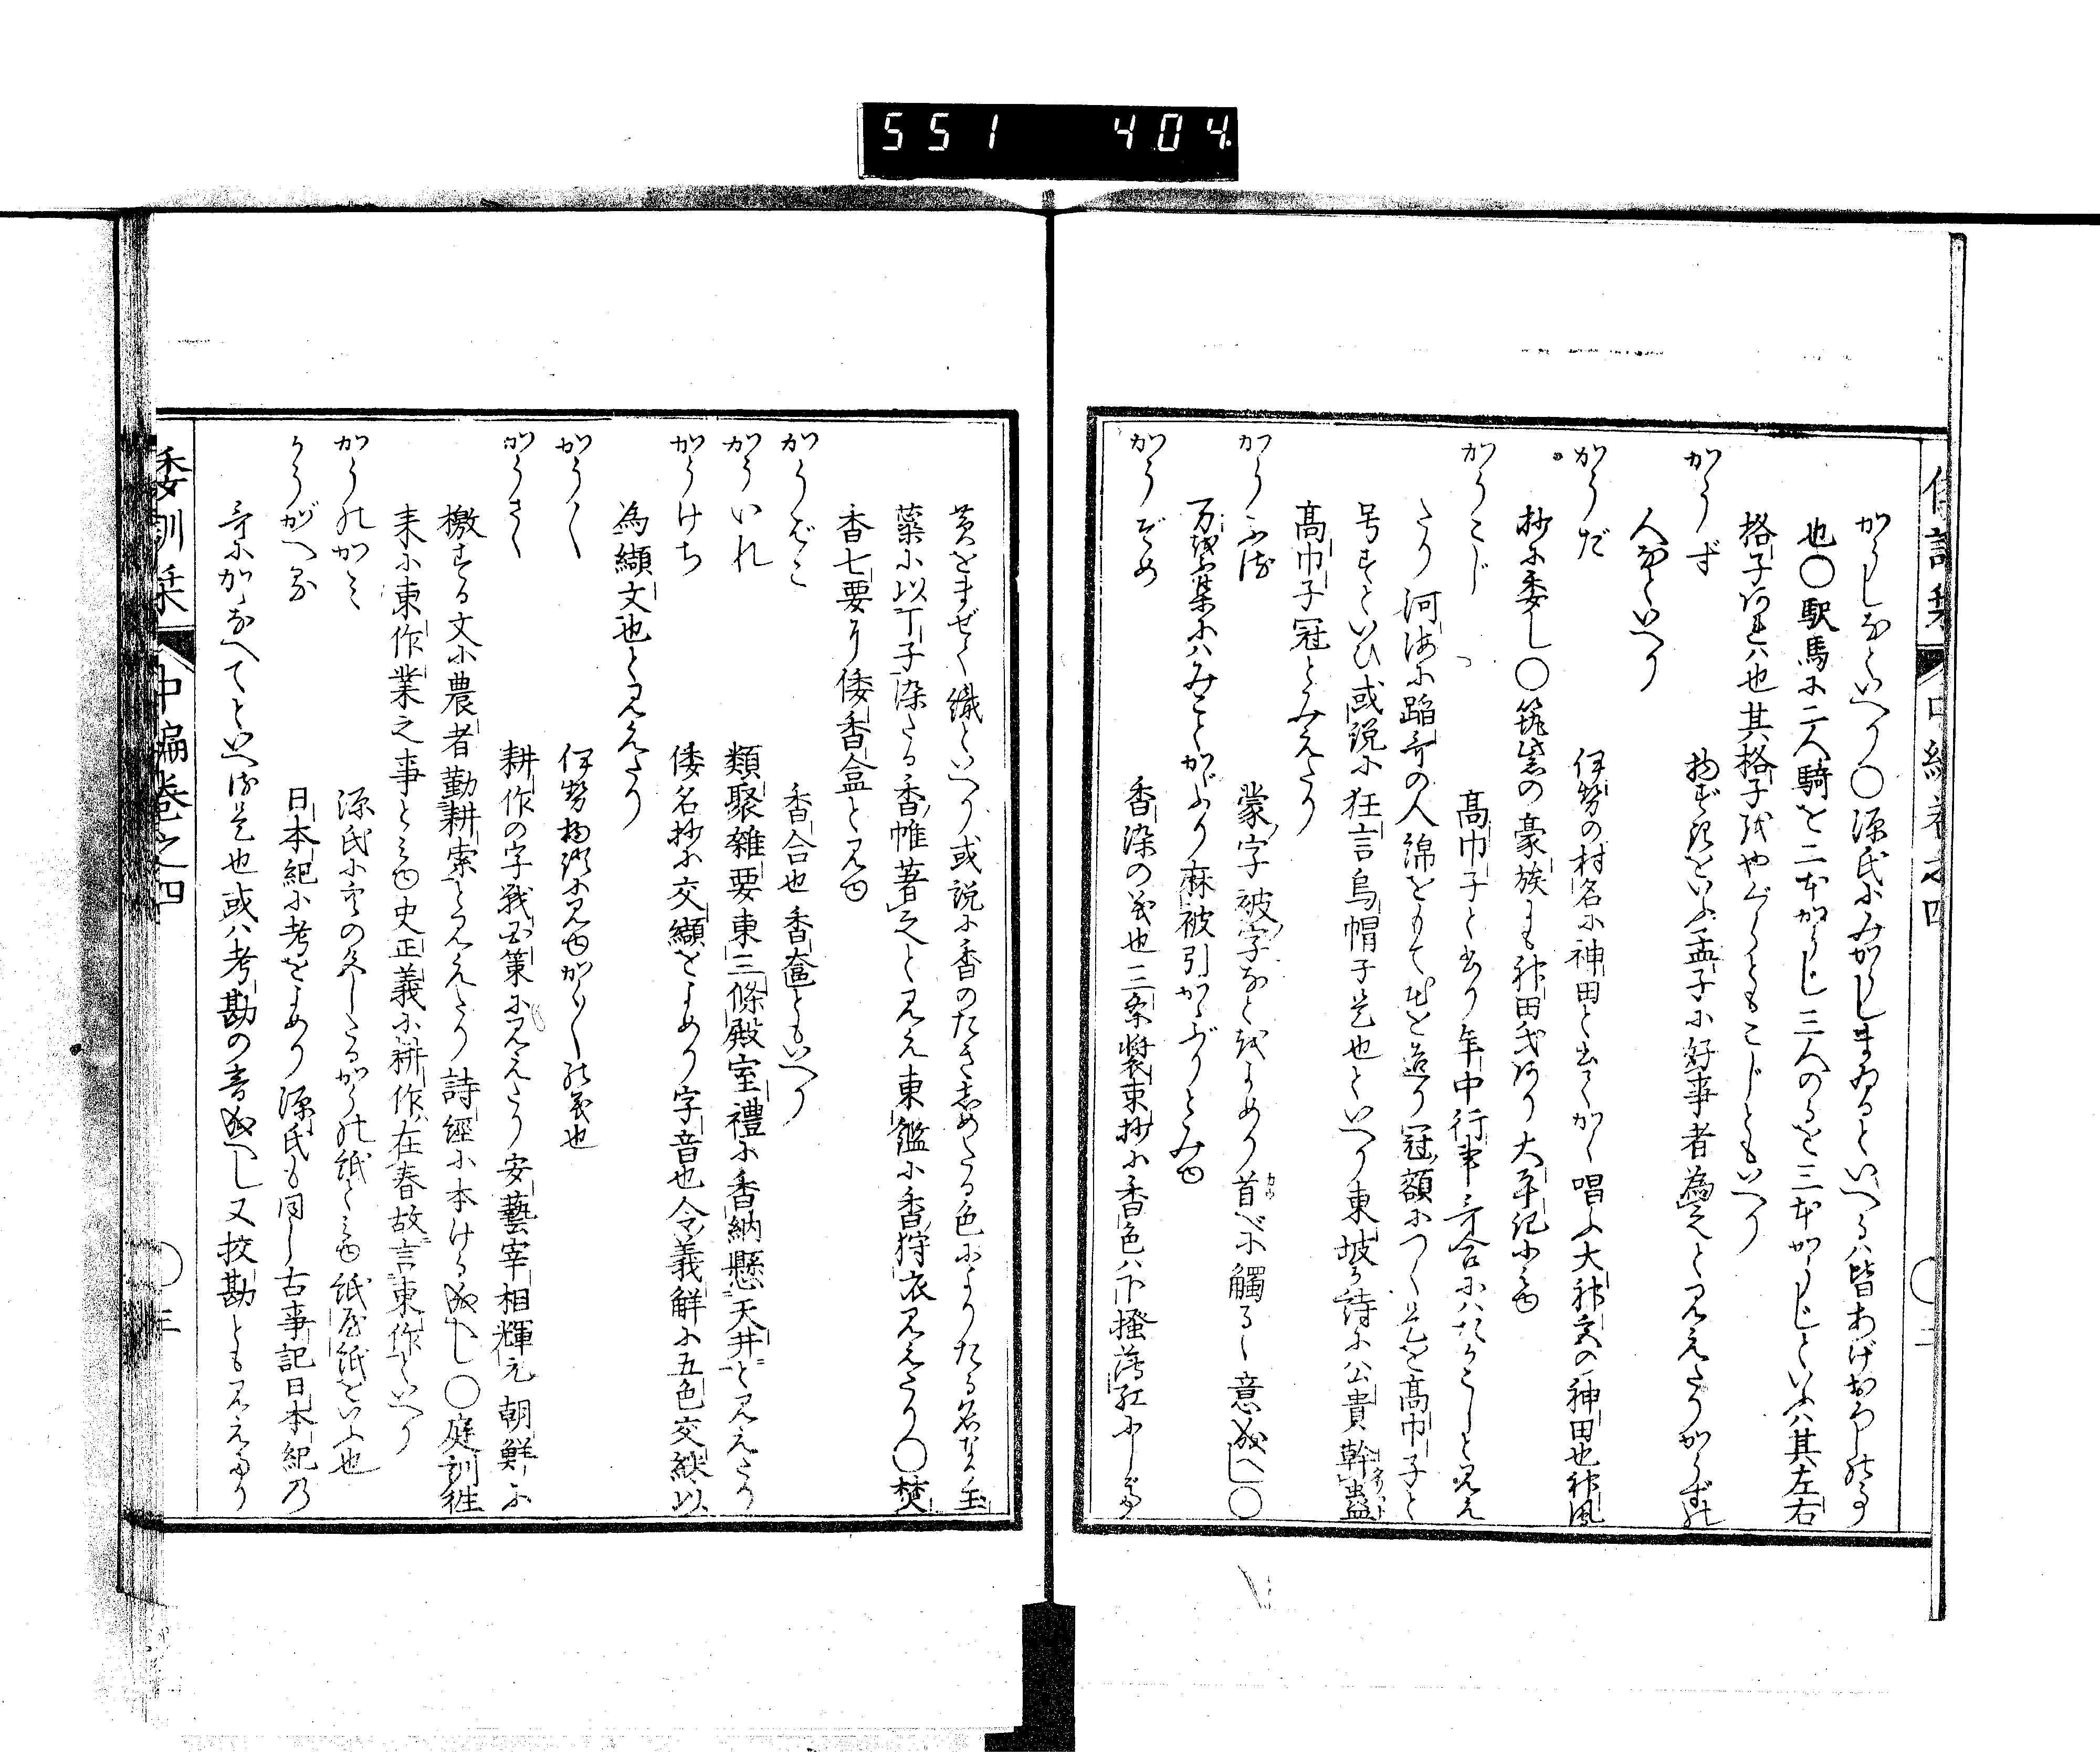 551 404
がうしなどいへり〇源氏にみがうしまゐるといへるは皆あげおろしの事
也〇駅馬に二人騎を二本がうし三人のるを三本がうしといふは其左右
格子あれは也其格子をやぐらともこしともいへり
がうず 物ずきをいふ孟子に好事者為之と見えたりがうずの
人などいへり
かうだ 伊勢の村名に神田と書てかく唱ふ大神宮の神田也神風
抄に委し〇筑紫の豪族にも神田氏あり大平記にみゆ
かうこじ 高巾子と書り年中行事哥合にはたかこしと見え
たり河海に蹈哥の人綿をもて花を造り冠額につく是を高巾子と
号すといひ或説に狂言烏帽子是也といへり東坡か詩に公貴幹蠱
高巾子冠とみえたり
かうふる 蒙字被字などをよめり首べに觸るゝ意成へし〇
万葉集にはみことかゞふり麻被引かゞふりとみゆ
かうぞめ 香染の義也三条装束抄に香色ハ下掻薄紅にしてや
黄をまぜて織といへり或説に香のたき志めたる色によりたる名なり玉
蘂に以丁子染たる香帷著之と見え東鑑に香狩衣見えたり〇焚
香七要に倭香盒と見ゆ
かうばこ 香合也香奩ともいへり
かういれ 類聚雜要東三條殿室禮に香納懸天井と見えたり
かうけち 倭名抄に交纈をよめり字音也令義解に五色交緂以
為纈文也と見えたり
かうかく 伊勢物語に見ゆかくかくの義也
かうさく 耕作の字戦国策に見えたり安藝宰相輝元朝鮮に
檄する文に農者勤耕索と見えたり詩經に本ける成へし〇庭訓徃
来に東作業之事とみゆ史正義に耕作在春故言東作といへり
かうのかみ 源氏に空の久したるかうの紙とみゆ紙屋紙をいふ也
かうがへる 日本紀に考をよめり源氏も同し古事記日本紀乃
哥にかゞなへてといへる是也或ハ考勘の音成へし又挍勘とも見えたり
倭訓栞 中編巻之四 〇三